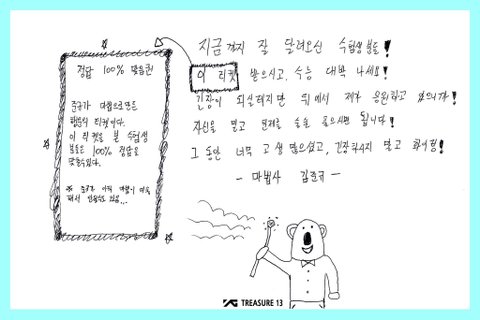 정답 100% 맞춤권
준규가 마법으로 만든
행운의 티켓이다.
이 티켓을 본 수험생
분들은 100% 정답을
맞출수있다.
※ 준규는 아직 마법이
해서
지금까지 잘 달려오신 수험생 분들!
이 티켓 받으시고, 수능 대박 나세요!
긴장이 되실테지만 뒤에서 제가 응원하고 있으니까!
자신을 믿고 문제를 술술 풀으시면 됩니다!
그 동안 너무 고생 많으셨고, 긴장하지 말고 화이팅!
- 마법사 김준규 -
YG TREASURE 13